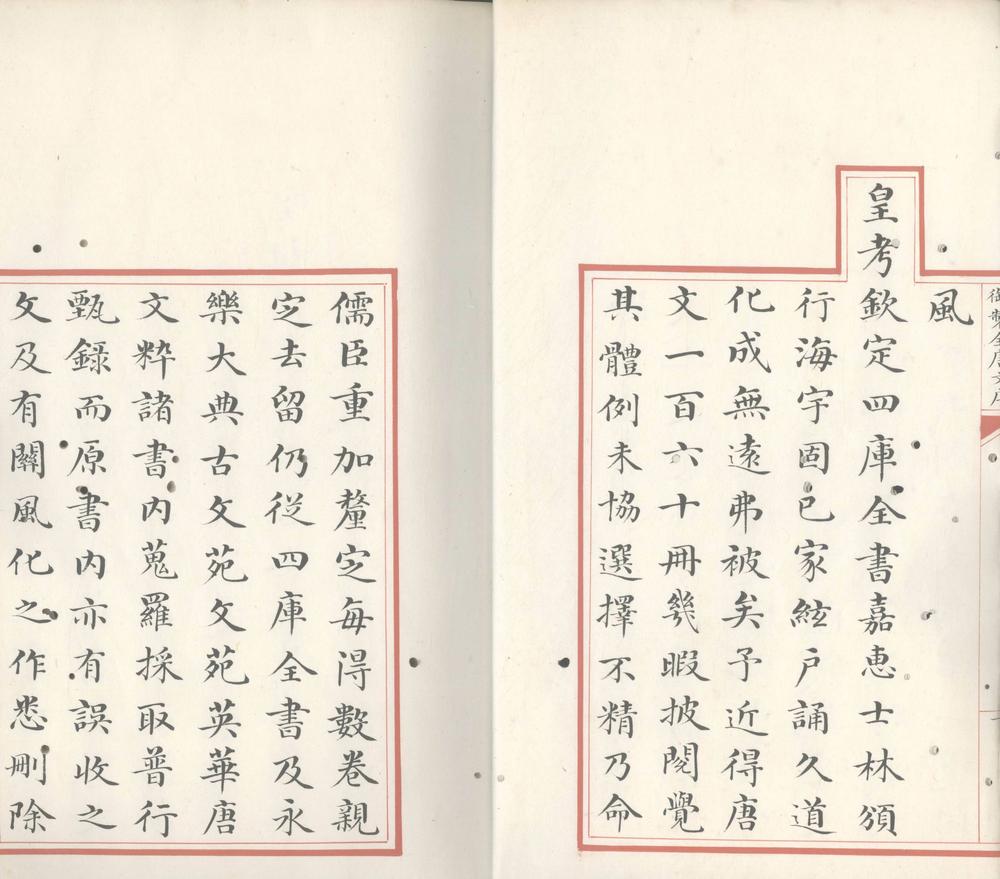 御製全唐文序
風
皇考欽定四庫全書嘉惠士林頒
行海宇固已家絃户誦久道
化成無遠弗被矣予近得唐
文一百六十冊幾暇披閱覺
其體例未協選擇不精乃命
儒臣重加釐定每得數卷親
定去留仍從四庫全書及永
樂大典古文苑文苑英華唐
文粹諸書内蒐羅採取普行
甄錄而原書内亦有誤收之
文及有關風化之作悉刪除